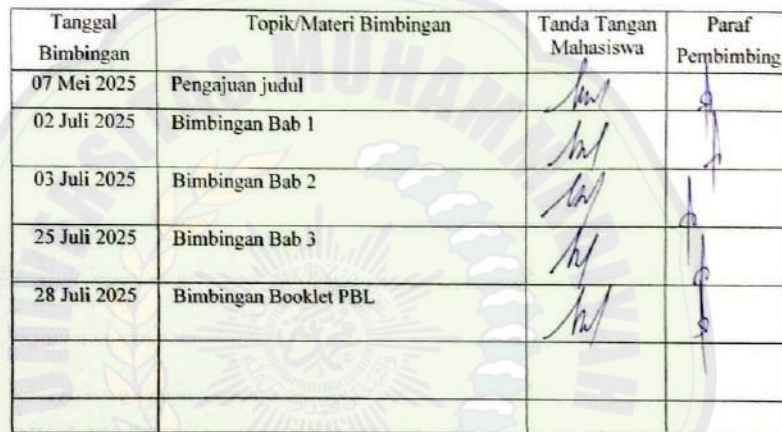 Tanggal Bimbingan Topik/Materi Bimbingan Tanda Tangan Mahasiswa Paraf Pembimbing
07 Mei 2025 Pengajuan judul
02 Juli 2025 Bimbingan Bab 1
03 Juli 2025 Bimbingan Bab 2
25 Juli 2025 Bimbingan Bab 3
28 Juli 2025 Bimbingan Booklet PBL
UNIVERSITAS MUHAMMADIYAH